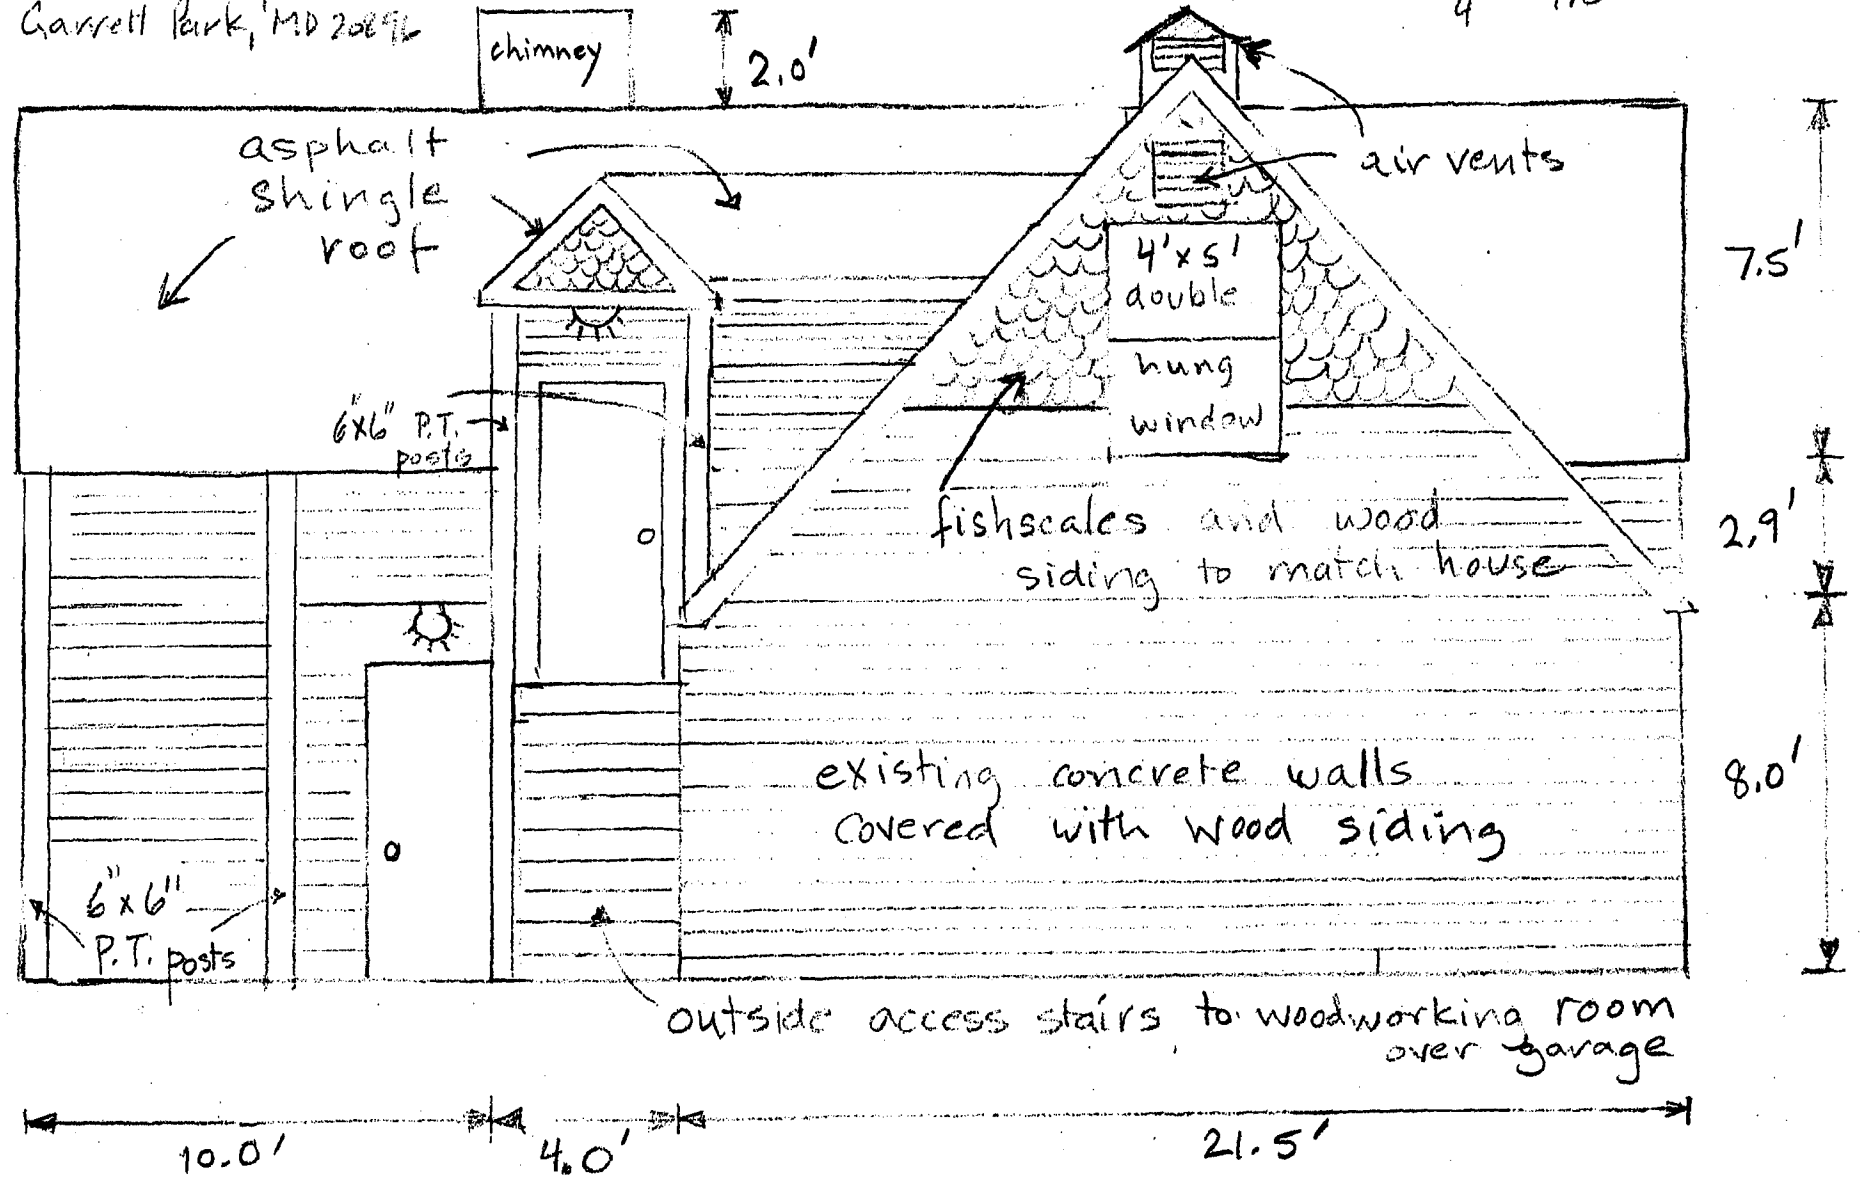 Garrett Park, MD 20896
4
chimney
2.0'
asphalt
shingle
roof
air vents
7.5'
4' x 5'
double
hung
window
6"x6" P.T.
posts
fishscales and wood
siding to match house
2.9'
existing concrete walls
covered with wood siding
8.0'
6"x6"
P.T. posts
outside access stairs to woodworking room
over garage
10.0'
4.0'
21.5'